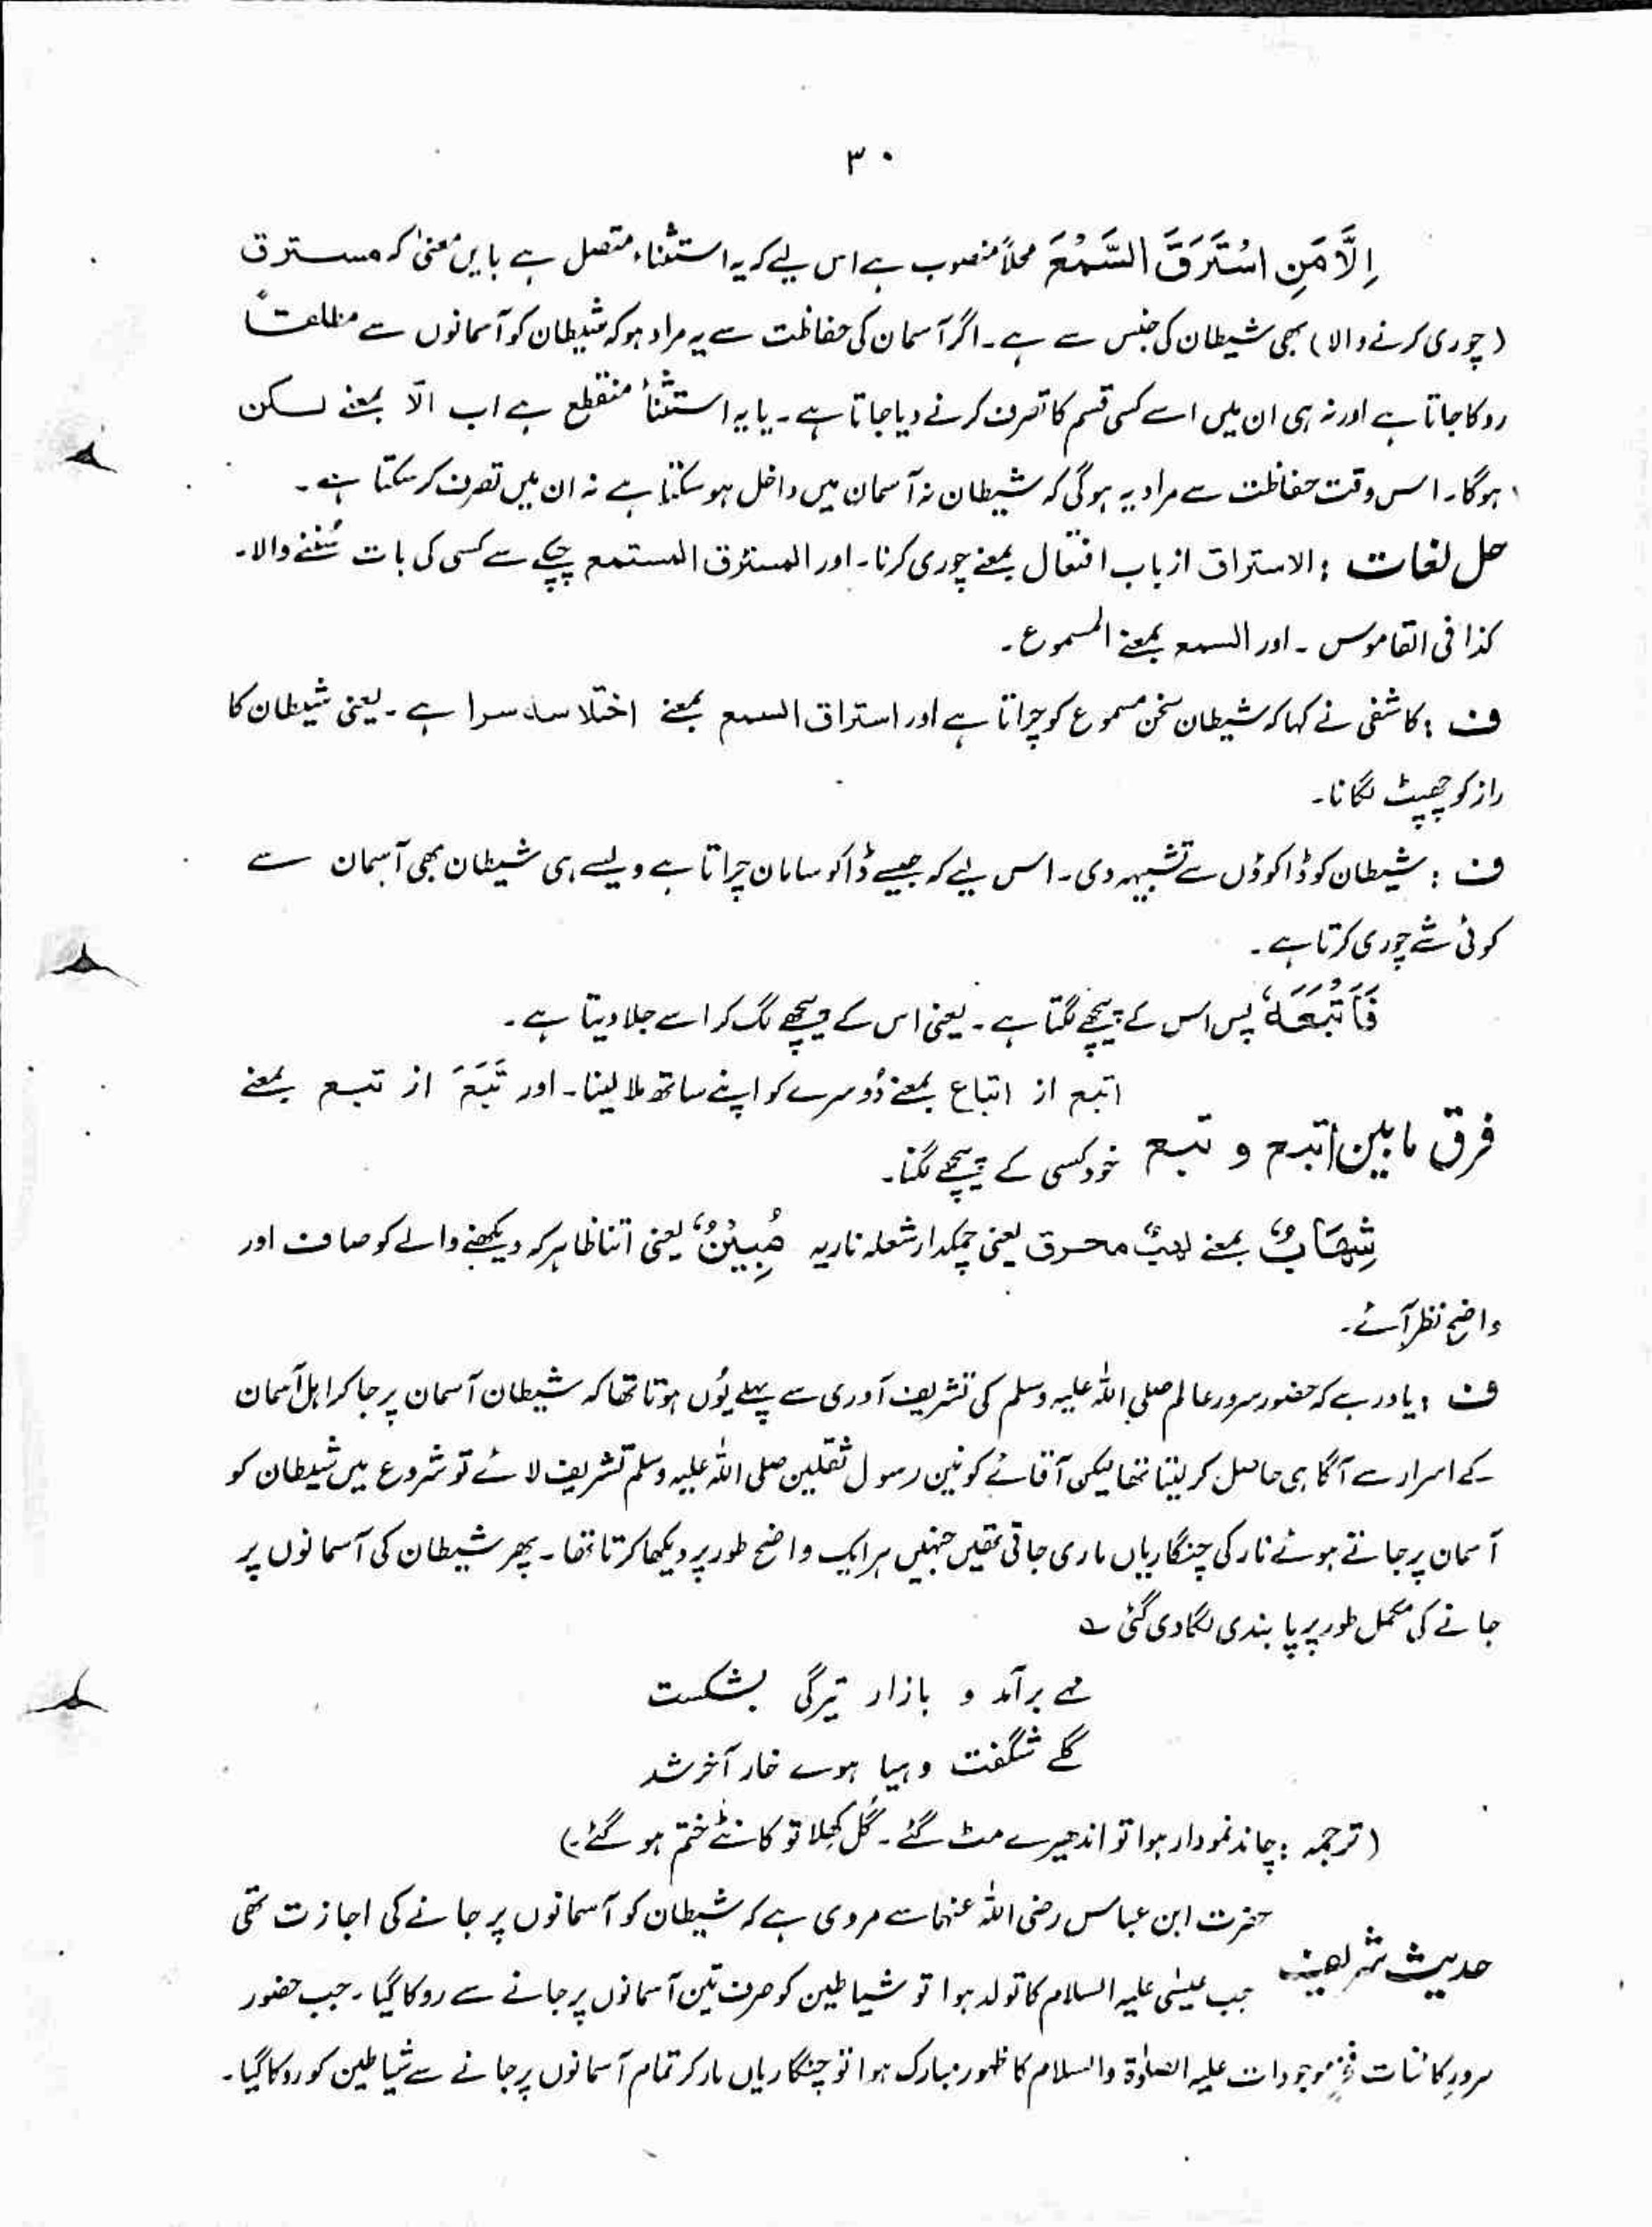 ۳۰
اِلَّا مَنِ اسْتَرَقَ السَّمْعَ محلاً منصوب ہے اس لیے کہ یہ استثناء متصل ہے بایں معنیٰ کہ مسترق
(چوری کرنے والا) بھی شیطان کی جنس سے ہے۔ اگر آسمان کی حفاظت سے یہ مراد ہو کہ شیطان کو آسمانوں سے مطلقاً
روکا جاتا ہے اور نہ ہی ان میں اسے کسی قسم کا تصرف کرنے دیا جاتا ہے۔ یا یہ استثناً منقطع ہے اب الّا بمعنے لسکن
ہوگا۔ اس وقت حفاظت سے مراد یہ ہوگی کہ شیطان نہ آسمان میں داخل ہو سکتا ہے نہ ان میں تصرف کر سکتا ہے۔
حل لغات : الاستراق از باب افتعال بمعنے چوری کرنا۔ اور المسترق المستمع چپکے سے کسی کی بات سُننے والا۔
کذا فی القاموس ۔ اور السمع بمعنے المسموع ۔
ف : کاشفی نے کہا کہ شیطان سخن مسموع کو چراتا ہے اور استراق السمع بمعنے اختلاسہ سرا ہے ۔ یعنی شیطان کا
راز کو جھپٹ لگانا۔
ف : شیطان کو ڈاکوؤں سے تشبیہہ دی۔ اس لیے کہ جیسے ڈاکو سامان چراتا ہے ویسے ہی شیطان بھی آسمان سے
کوئی شے چوری کرتا ہے ۔
فَاَتْبَعَهٗ پس اس کے پیچھے لگتا ہے ۔ یعنی اس کے پیچھے لگ کر اسے جلا دیتا ہے ۔
اتبع از اتباع بمعنے دُوسرے کو اپنے ساتھ ملا لینا۔ اور تَبَعَ از تبع بمعنے
فرق مابین اتبع و تبع خود کسی کے پیچھے لگنا۔
شِهَابٌ بمعنے لهبٌ محرق یعنی چمکدار شعلہ ناریہ مُّبِيْنٌ یعنی اتنا ظاہر کہ دیکھنے والے کو صاف اور
واضح نظر آئے۔
ف : یاد رہے کہ حضور سرور عالم صلی اللہ علیہ وسلم کی تشریف آوری سے پہلے یُوں ہوتا تھا کہ شیطان آسمان پر جا کر اہل آسمان
کے اسرار سے آگاہی حاصل کر لیتا تھا لیکن آقائے کونین رسول ثقلین صلی اللہ علیہ وسلم تشریف لائے تو شروع میں شیطان کو
آسمان پر جاتے ہوئے نار کی چنگاریاں ماری جاتی تھیں جنہیں ہر ایک واضح طور پر دیکھا کرتا تھا۔ پھر شیطان کی آسمانوں پر
جانے کی مکمل طور پر پابندی لگا دی گئی ؎
مہے برآمد و بازار تیرگی بشکست
گلے شگفت و ہیا ہوے خار آخر شد
(ترجمہ : چاند نمودار ہوا تو اندھیرے مٹ گئے ۔ گُل کھِلا تو کانٹے ختم ہو گئے ۔)
حضرت ابن عباس رضی اللہ عنہما سے مروی ہے کہ شیطان کو آسمانوں پر جانے کی اجازت تھی
حدیث شریف جب عیسٰی علیہ السلام کا تولد ہوا تو شیاطین کو صرف تین آسمانوں پر جانے سے روکا گیا ۔ جب حضور
سرورِ کائنات فخرِ موجودات علیہ الصلوٰۃ والسلام کا ظہور مبارک ہوا تو چنگاریاں مار کر تمام آسمانوں پر جانے سے شیاطین کو روکا گیا۔